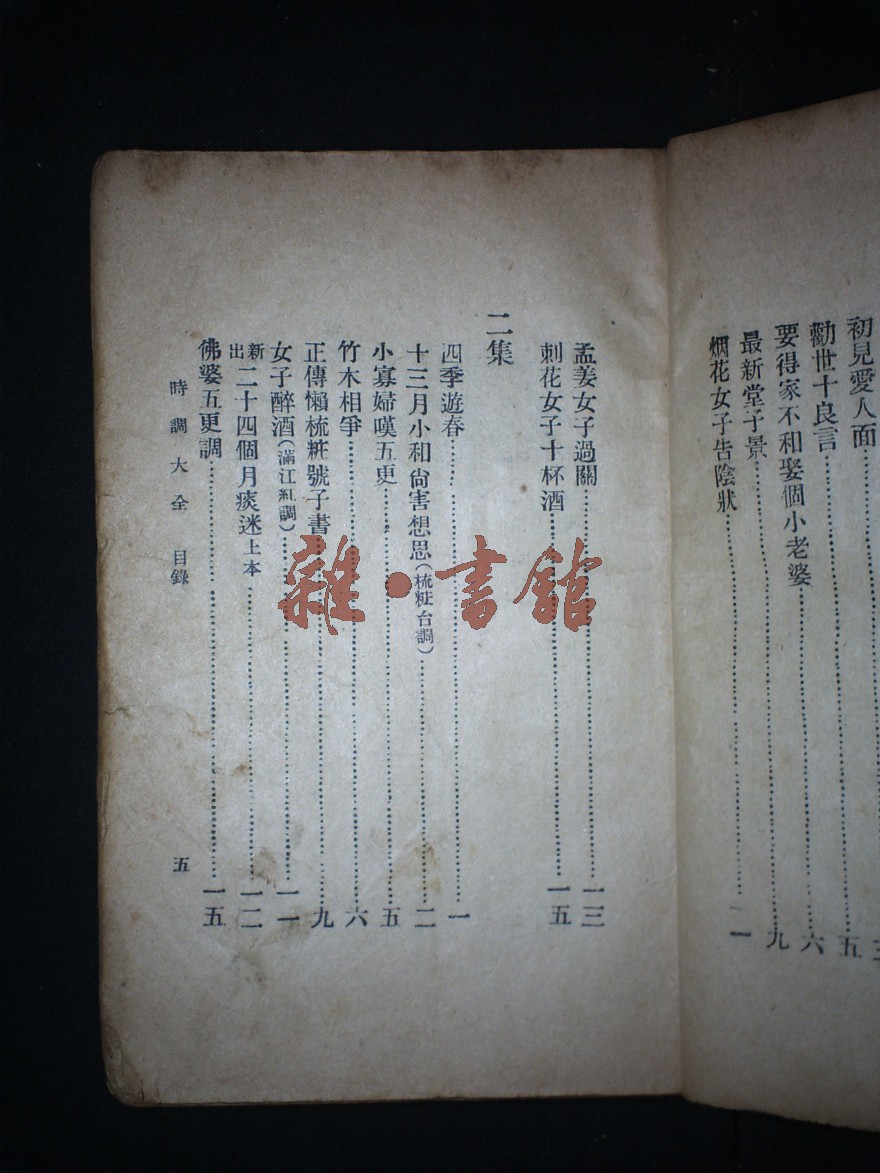 初見愛人面
勸世十良言……五
要得家不和娶個小老婆……六
最新堂子景……九
烟花女子告陰狀……一
孟姜女子過關……一三
刺花女子十杯酒……一五
二集
四季遊春……一
十三月小和尙害想思(梳粧台調)……二
小寡婦嘆五更……五
竹木相爭……六
正傳懶梳粧號子書……九
女子醉酒(滿江紅調)……一一
新出二十四個月痰迷上本……一二
佛婆五更調……一五
時調大全 目錄 五
雜·書館